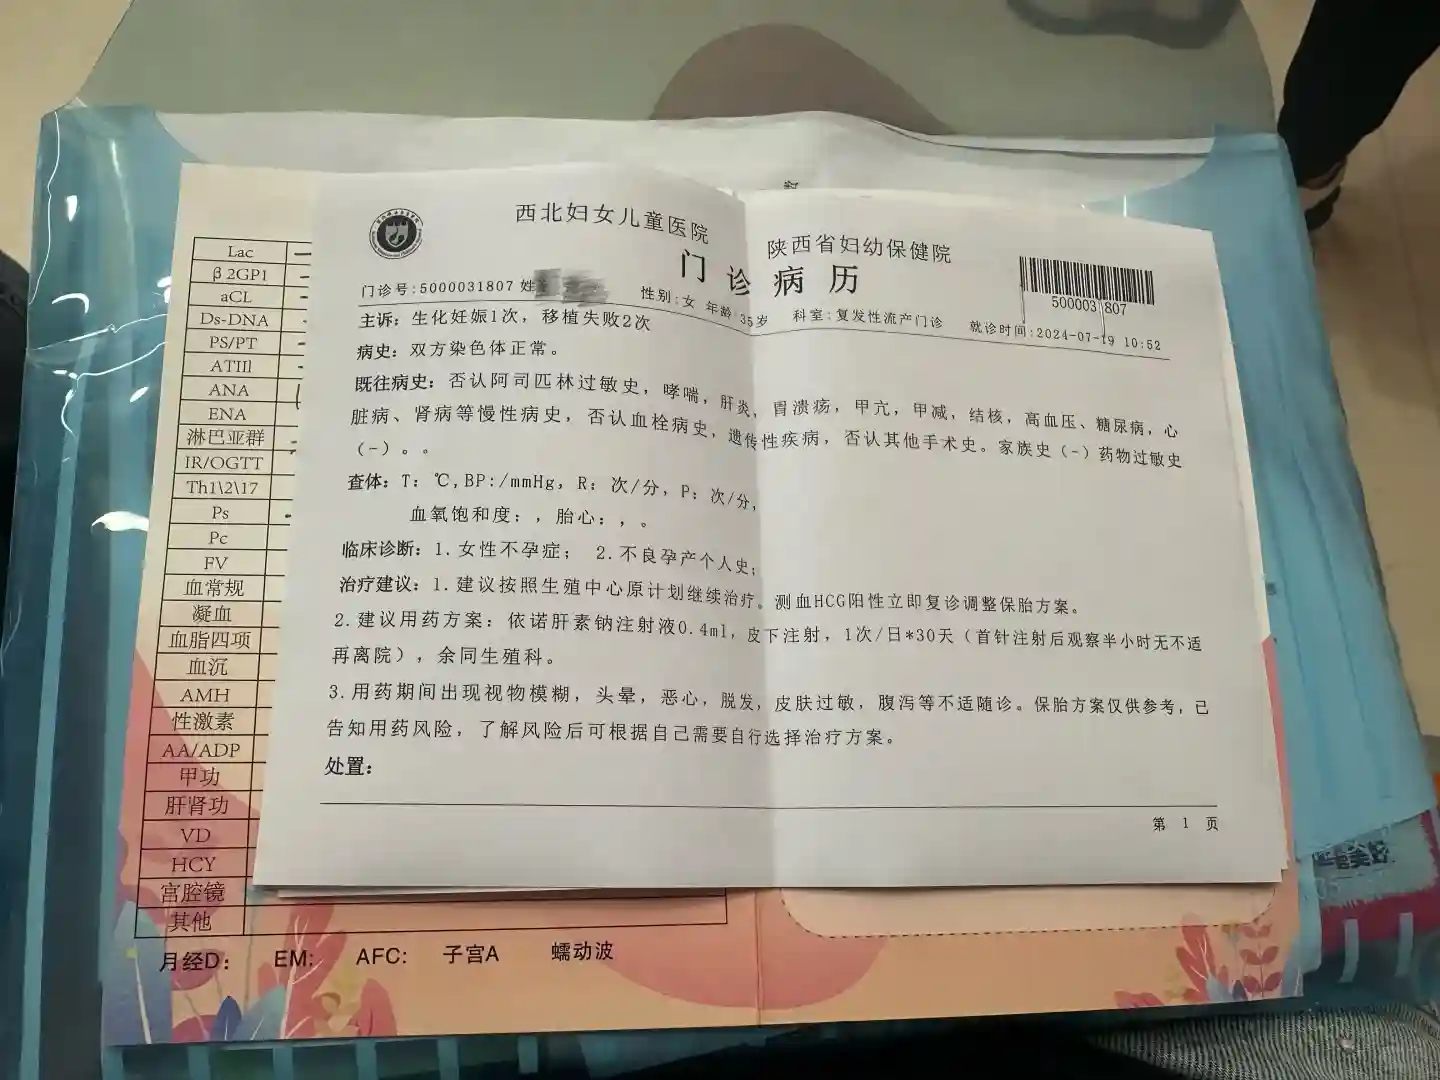 西北妇女儿童医院 陕西省妇幼保健院
门诊病历
500003 807
门诊号:5000031807 姓 性别:女 年龄:35岁 科室:复发性流产门诊 就诊时间:2024-07-19 10:52
主诉：生化妊娠1次，移植失败2次
病史：双方染色体正常。
既往病史：否认阿司匹林过敏史，哮喘，肝炎，胃溃疡，甲亢，甲减，结核，高血压、糖尿病，心
脏病、肾病等慢性病史，否认血栓病史，遗传性疾病，否认其他手术史。家族史（-）药物过敏史
（-）。。
查体：T: ℃,BP:/mmHg，R: 次/分，P: 次/分，
血氧饱和度：，胎心：，。
临床诊断：1.女性不孕症； 2.不良孕产个人史；
治疗建议：1.建议按照生殖中心原计划继续治疗。测血HCG阳性立即复诊调整保胎方案。
2.建议用药方案：依诺肝素钠注射液0.4ml，皮下注射，1次/日*30天（首针注射后观察半小时无不适
再离院），余同生殖科。
3.用药期间出现视物模糊，头晕，恶心，脱发，皮肤过敏，腹泻等不适随诊。保胎方案仅供参考，已
告知用药风险，了解风险后可根据自己需要自行选择治疗方案。
处置：
第 1 页
Lac
β2GP1
aCL
Ds-DNA
PS/PT
ATIII
ANA
ENA
淋巴亚群
IR/OGTT
Th1\2\17
Ps
Pc
FV
血常规
凝血
血脂四项
血沉
AMH
性激素
AA/ADP
甲功
肝肾功
VD
HCY
宫腔镜
其他
月经D： EM: AFC: 子宫A 蠕动波